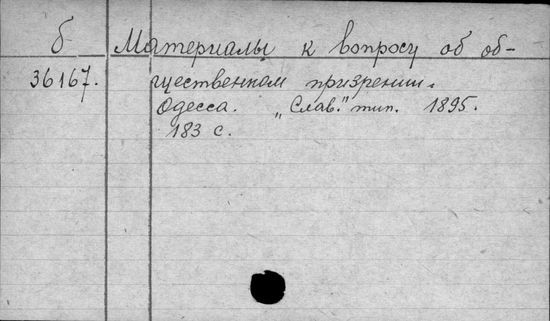 б Материалы к вопросу об об-
36167. щественном призрении.
Одесса. „Слав." тип. 1895.
183 с.